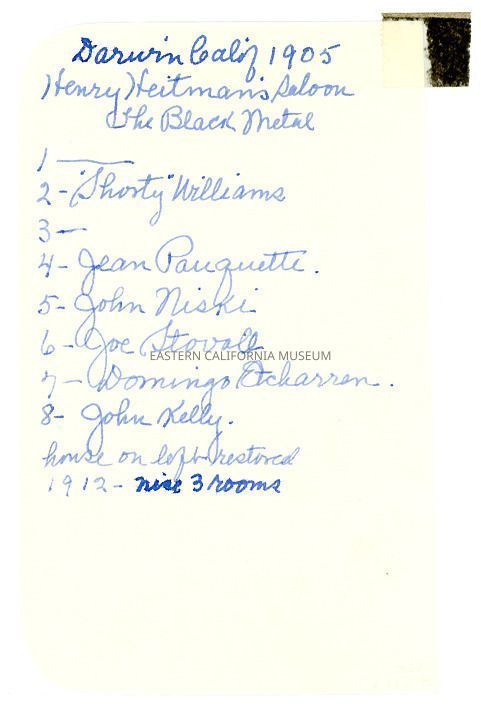 Darwin Calif 1905
Henry Heitman's Saloon
The Black Metal
1 —
2 - "Shorty" Williams
3 —
4 - Jean Pauquette.
5 - John Niski
6 - Joe Stovall
EASTERN CALIFORNIA MUSEUM
7 - Domingo Etcharren.
8 - John Kelly.
house on left restored
1912 - nise 3 rooms